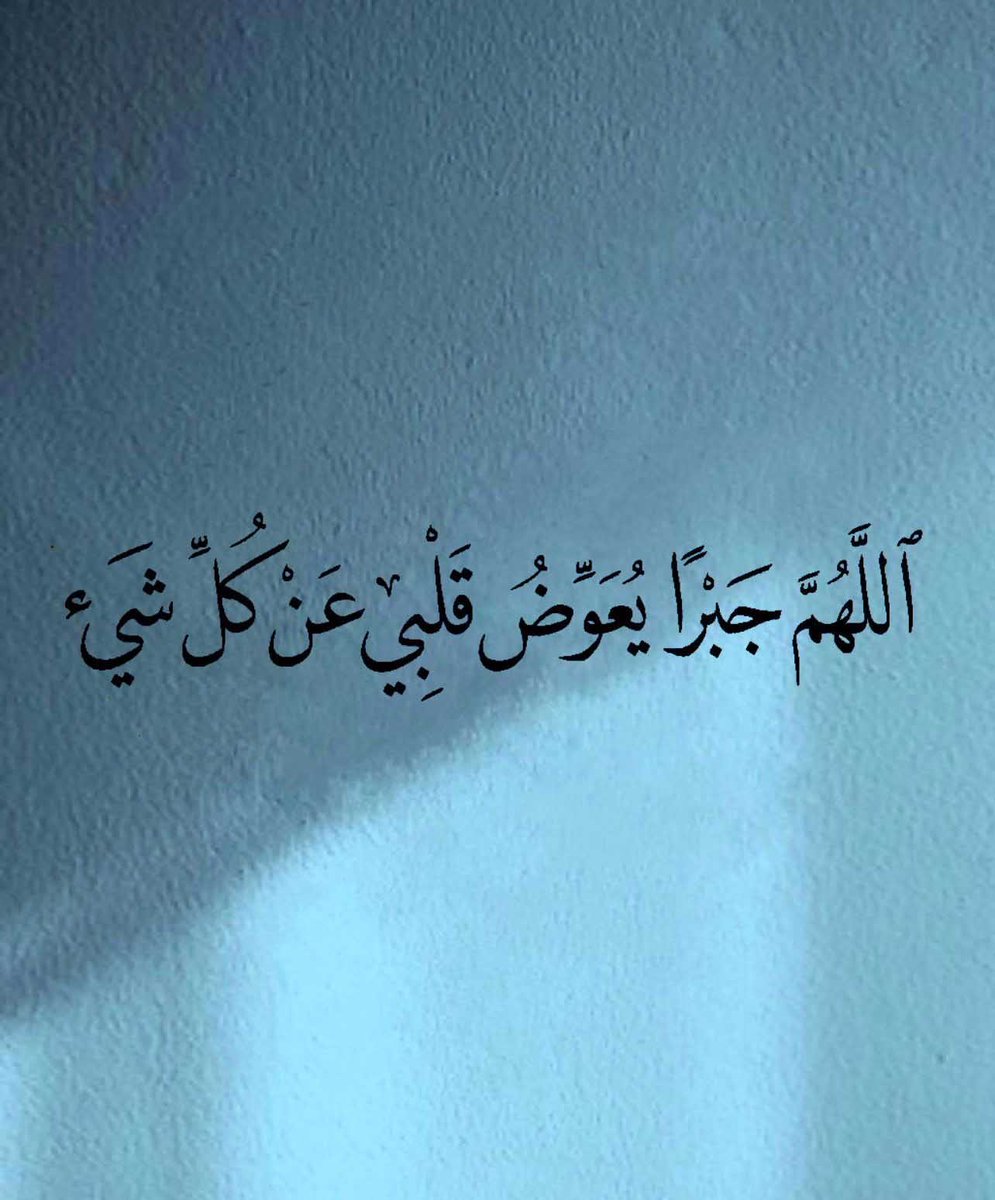 ٱللَّهُمَّ جَبْرًا يُعَوِّضُ قَلْبِي عَنْ كُلِّ شَيَء